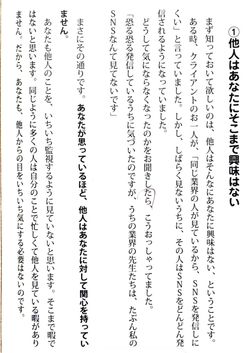 ①他人はあなたにそこまで興味はない
まず知っておいて欲しいのは、他人はそんなにあなたに興味はない、ということです。
ある時、クライアントのお一人が、「同じ業界の人が見ているから、SNSを発信しに
くい」と言っていました。しかし、しばらく見ないうちに、その人はSNSをどんどん発
信されるようになってきました。
どうして気にならなくなったのかをお聞きしたら、こうおっしゃってました。
「恐る恐る発信しているうちに気づいたのですが、うちの業界の先生たちは、たぶん私の
SNSなんて見てないです」
まさにその通りです。あなたが思っているほど、他人はあなたに対して関心を持ってい
ません。
あなたも他人のことを、いちいち監視するように見ていないと思います。そこまで暇で
はないと思います。同じように多くの人は自分のことで忙しくて他人を見ている暇があり
ません。だから、あなたも、他人からの目をいちいち気にする必要はないのです。